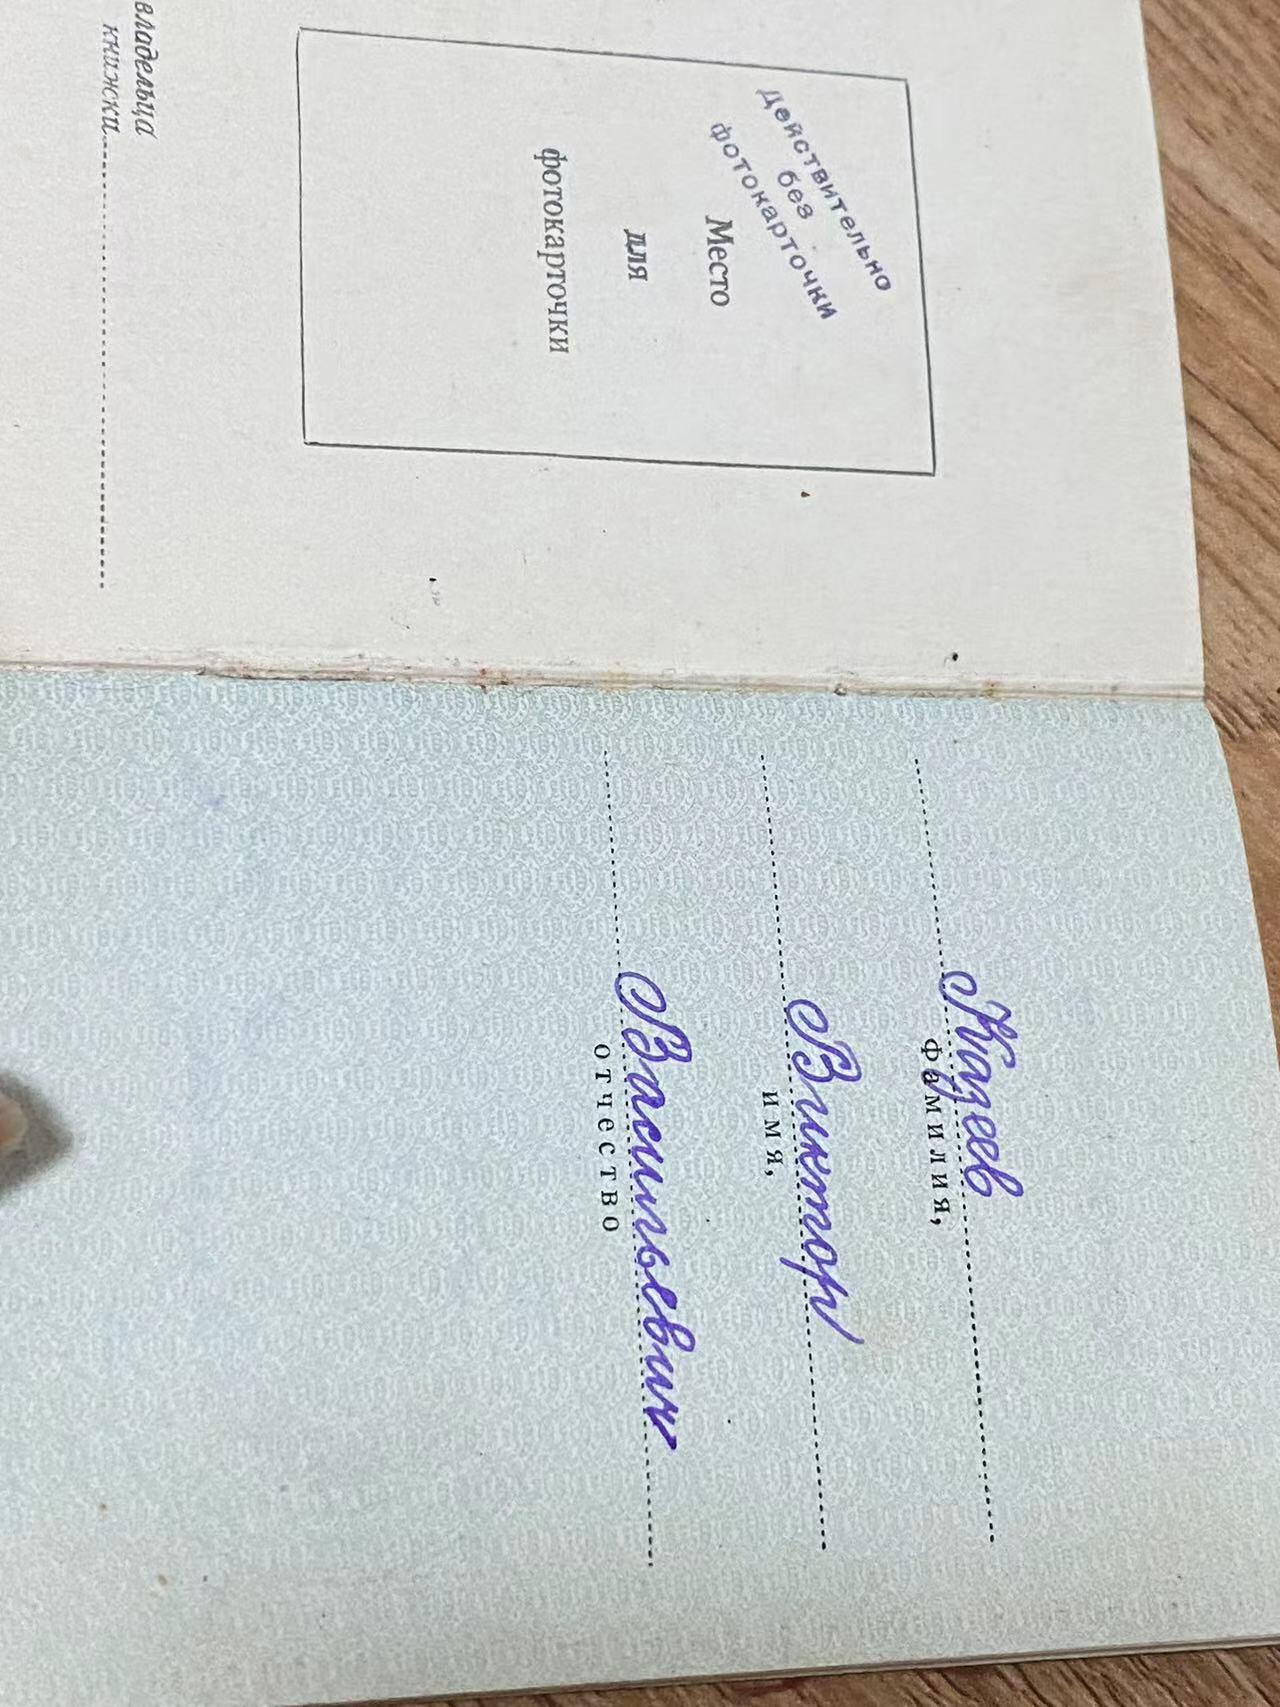 действительно
без
фотокарточки
Место
для
фотокарточки
владельца
книжки
Казеев
фамилия,
Виктор
имя,
Васильевич
отчество